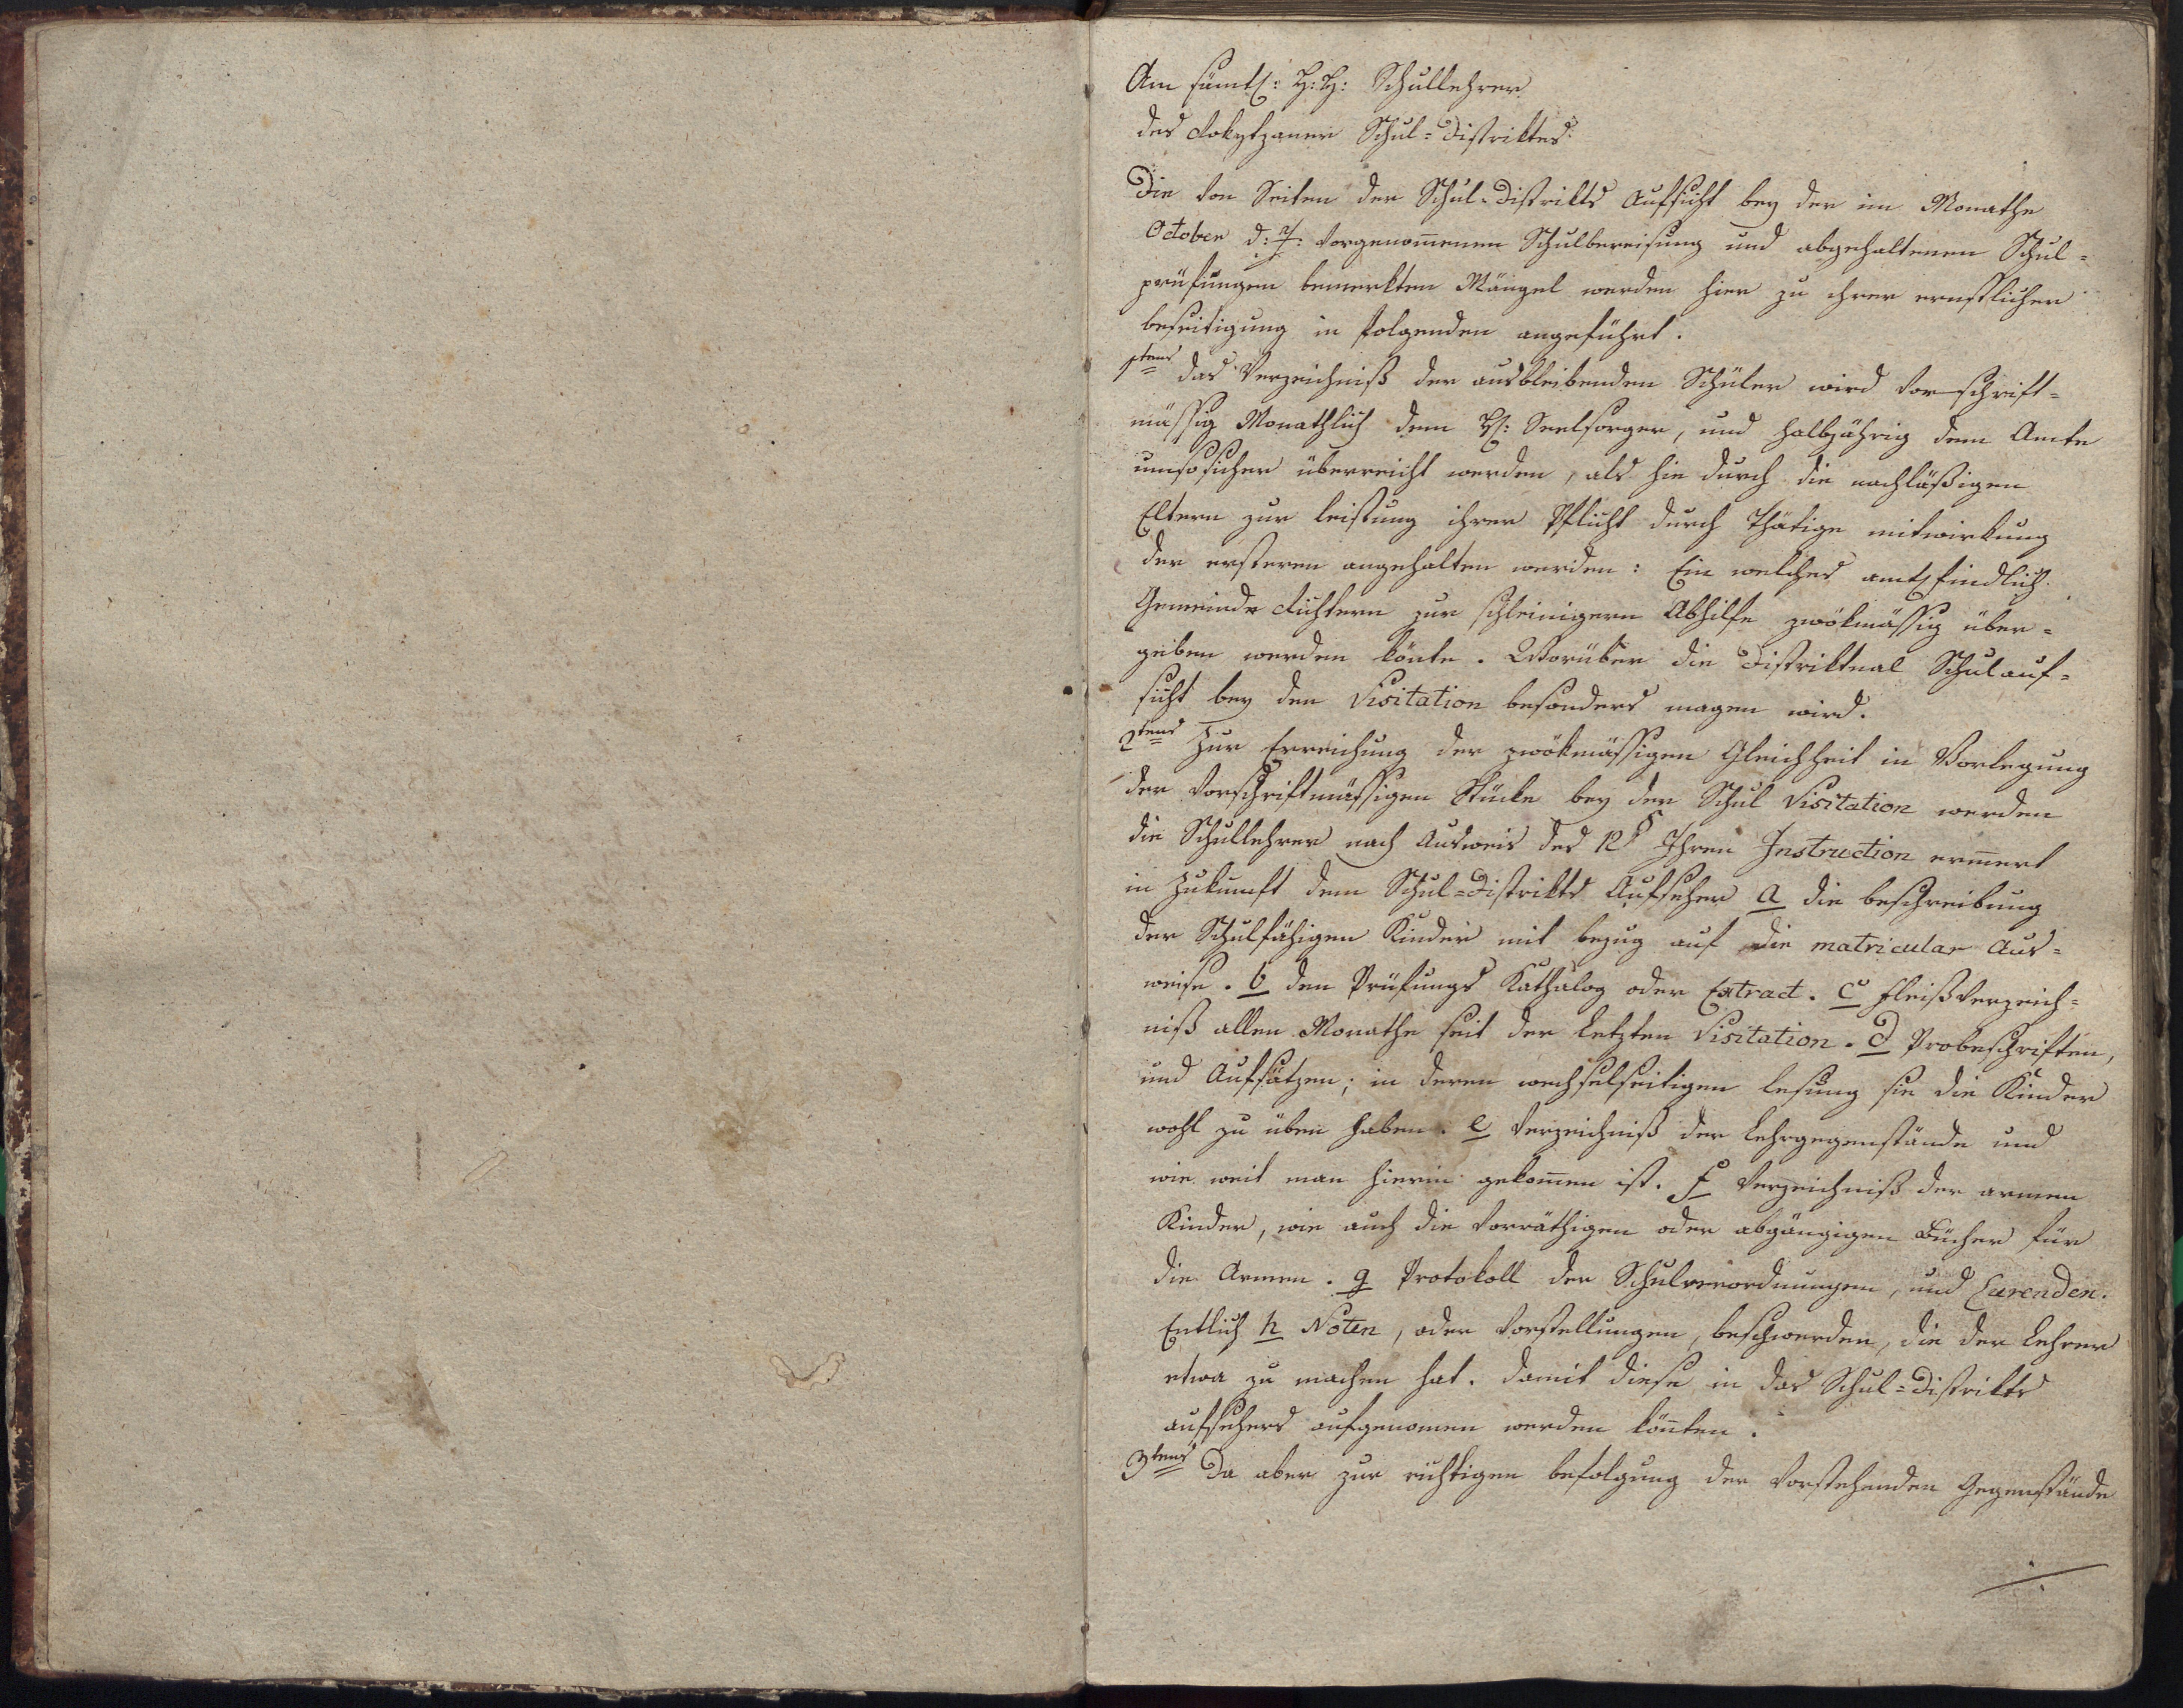 Am sämtl: H: H: Schullehrer
des Rokytzaner Schul=Distriktes.
Die von Seiten der Schul=Distrikts Aufsicht bey der im Monathe
October d: J: vorgenom̄enen Schulbereisung und abgehaltenen Schul=
prüfungen bemerkten Mängel werden hier zu ihrer ernstlichen
beseitigung in folgenden angeführt.
1tens das Verzeichniß der ausbleibenden Schüler wird vorschrift=
mässig Monathlich dem H: Seelsorger, und halbjährig dem Amte
umsosicher überreicht werden, als hie durch die nachläßigen
Eltern zur leistung ihrer Pflicht durch Thätige mitwirkung
der ersteren angehalten werden: Ein welches
Gemeinde Richtern zur schleinigern Abhilfe zwökmässig über=
geben werden könte. Worüber die Distriktual Schulauf=
sicht bey den Visitation besonders wagen wird.
2tens Zur Erreichung der zwökmässigen Gleichheit in Vorlegung
der vorschriftmässigen Stücke bey der Schul Visitation werden
die Schullehrer nach Ausweis des 12 § Ihren Instruction erin̄ert
in Zukunft dem Schul=Distrikts Aufseher a die beschreibung
der Schulfähigen Kinder mit bezug auf die matricular Aus=
weise. b den Prüfungs Kathalog oder Extract. c fleißverzeich=
niß allen Monathe seit der letzten Visitation. d Probeschriften,
und Aufsätzen; in deren wechselseitigen lesung sie die Kinder
wohl zu üben haben. e Verzeichniß der Lehrgegenstände und
wie weit man hierin gekom̄en ist. f Verzeichniß der armen
Kinder, wie auch die vorräthigen oder abgängigen Bücher für
die Armen. g Protokoll der Schulverordnungen, und Currenden.
Entlich h Noten, oder Vorstellungen, beschwerden, die der Lehrer
etwa zu machen hat. damit diese in das Schul=Distrikts
aufsehers aufgenomen werden kön̄ten.
3tens Da aber zur richtigen befolgung der vorstehenden Gegenstände